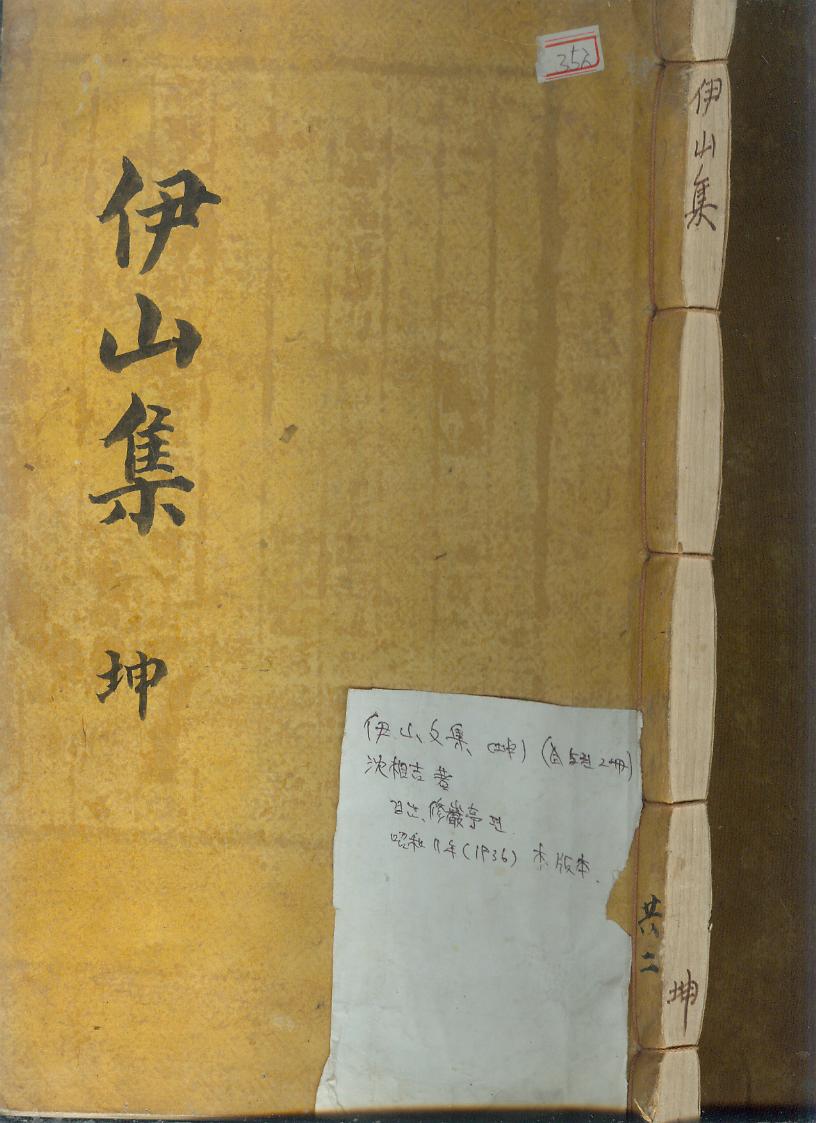 伊山集
坤
352
伊山集
共二
坤
伊山文集 (坤) (全 5권 2冊)
沈相吉 著
修巖亭 면
昭和 11年(1936) 木版本.